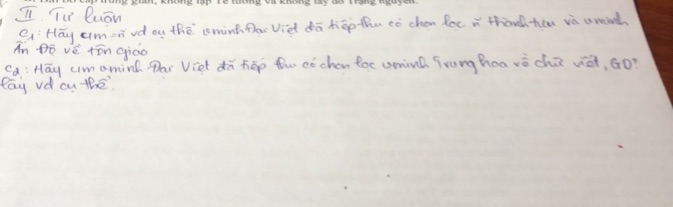 II Tự luận
C1: Hãy cm = n vd cụ thể vminh Đại Việt đã tiếp thu có chọn lọc n thành tựu và vminh
Ấn Độ về tôn giáo
C2: Hãy cm vminh Đại Việt đã tiếp thu có chọn lọc vminh Trung hoa về chữ viết, GD?
lấy vd cụ thể.